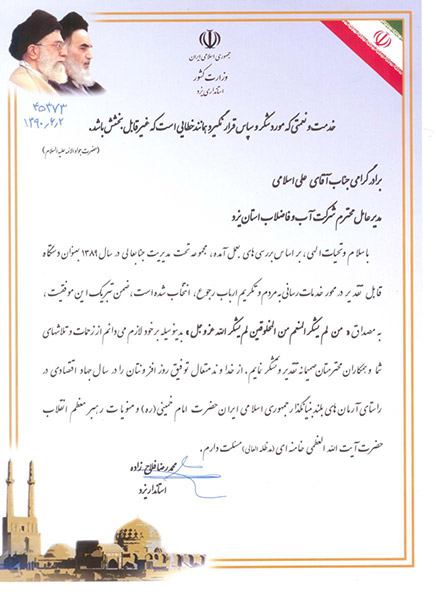 جمهوری اسلامی ایران
وزارت کشور
استانداری یزد
۴۵۳۷۳
۱۳۹۰,۶,۲
خدمت و نعمتی که مورد شکر و سپاس قرار نگیرد همانند خطایی است که غیر قابل بخشش باشد.
برادر گرامی جناب آقای علی اسلامی
مدیر عامل محترم شرکت آب و فاضلاب استان یزد
با سلام و تحیات الهی، بر اساس بررسی های بعمل آمده، مجموعه تحت مدیریت جنابعالی در سال ۱۳۸۹ بعنوان دستگاه
قابل تقدیر در محور خدمات رسانی به مردم و تکریم ارباب رجوع، انتخاب شده است، ضمن تبریک این موفقیت،
به مصداق « من لم یشکر المنعم من المخلوقین لم یشکر الله عز و جل » بدینوسیله بر خود لازم می دانم از زحمات و تلاشهای
شما و همکاران محترمتان صمیمانه تقدیر و تشکر نمایم . از خداوند متعال توفیق روز افزونتان را در سال جهاد اقتصادی در
راستای آرمان های بلند بنیانگذار جمهوری اسلامی ایران حضرت امام خمینی (ره) و منویات رهبر معظم انقلاب
حضرت آیت الله العظمی خامنه ای (مدظله العالی) مسئلت دارم .
محمدرضا فلاح زاده
استاندار یزد